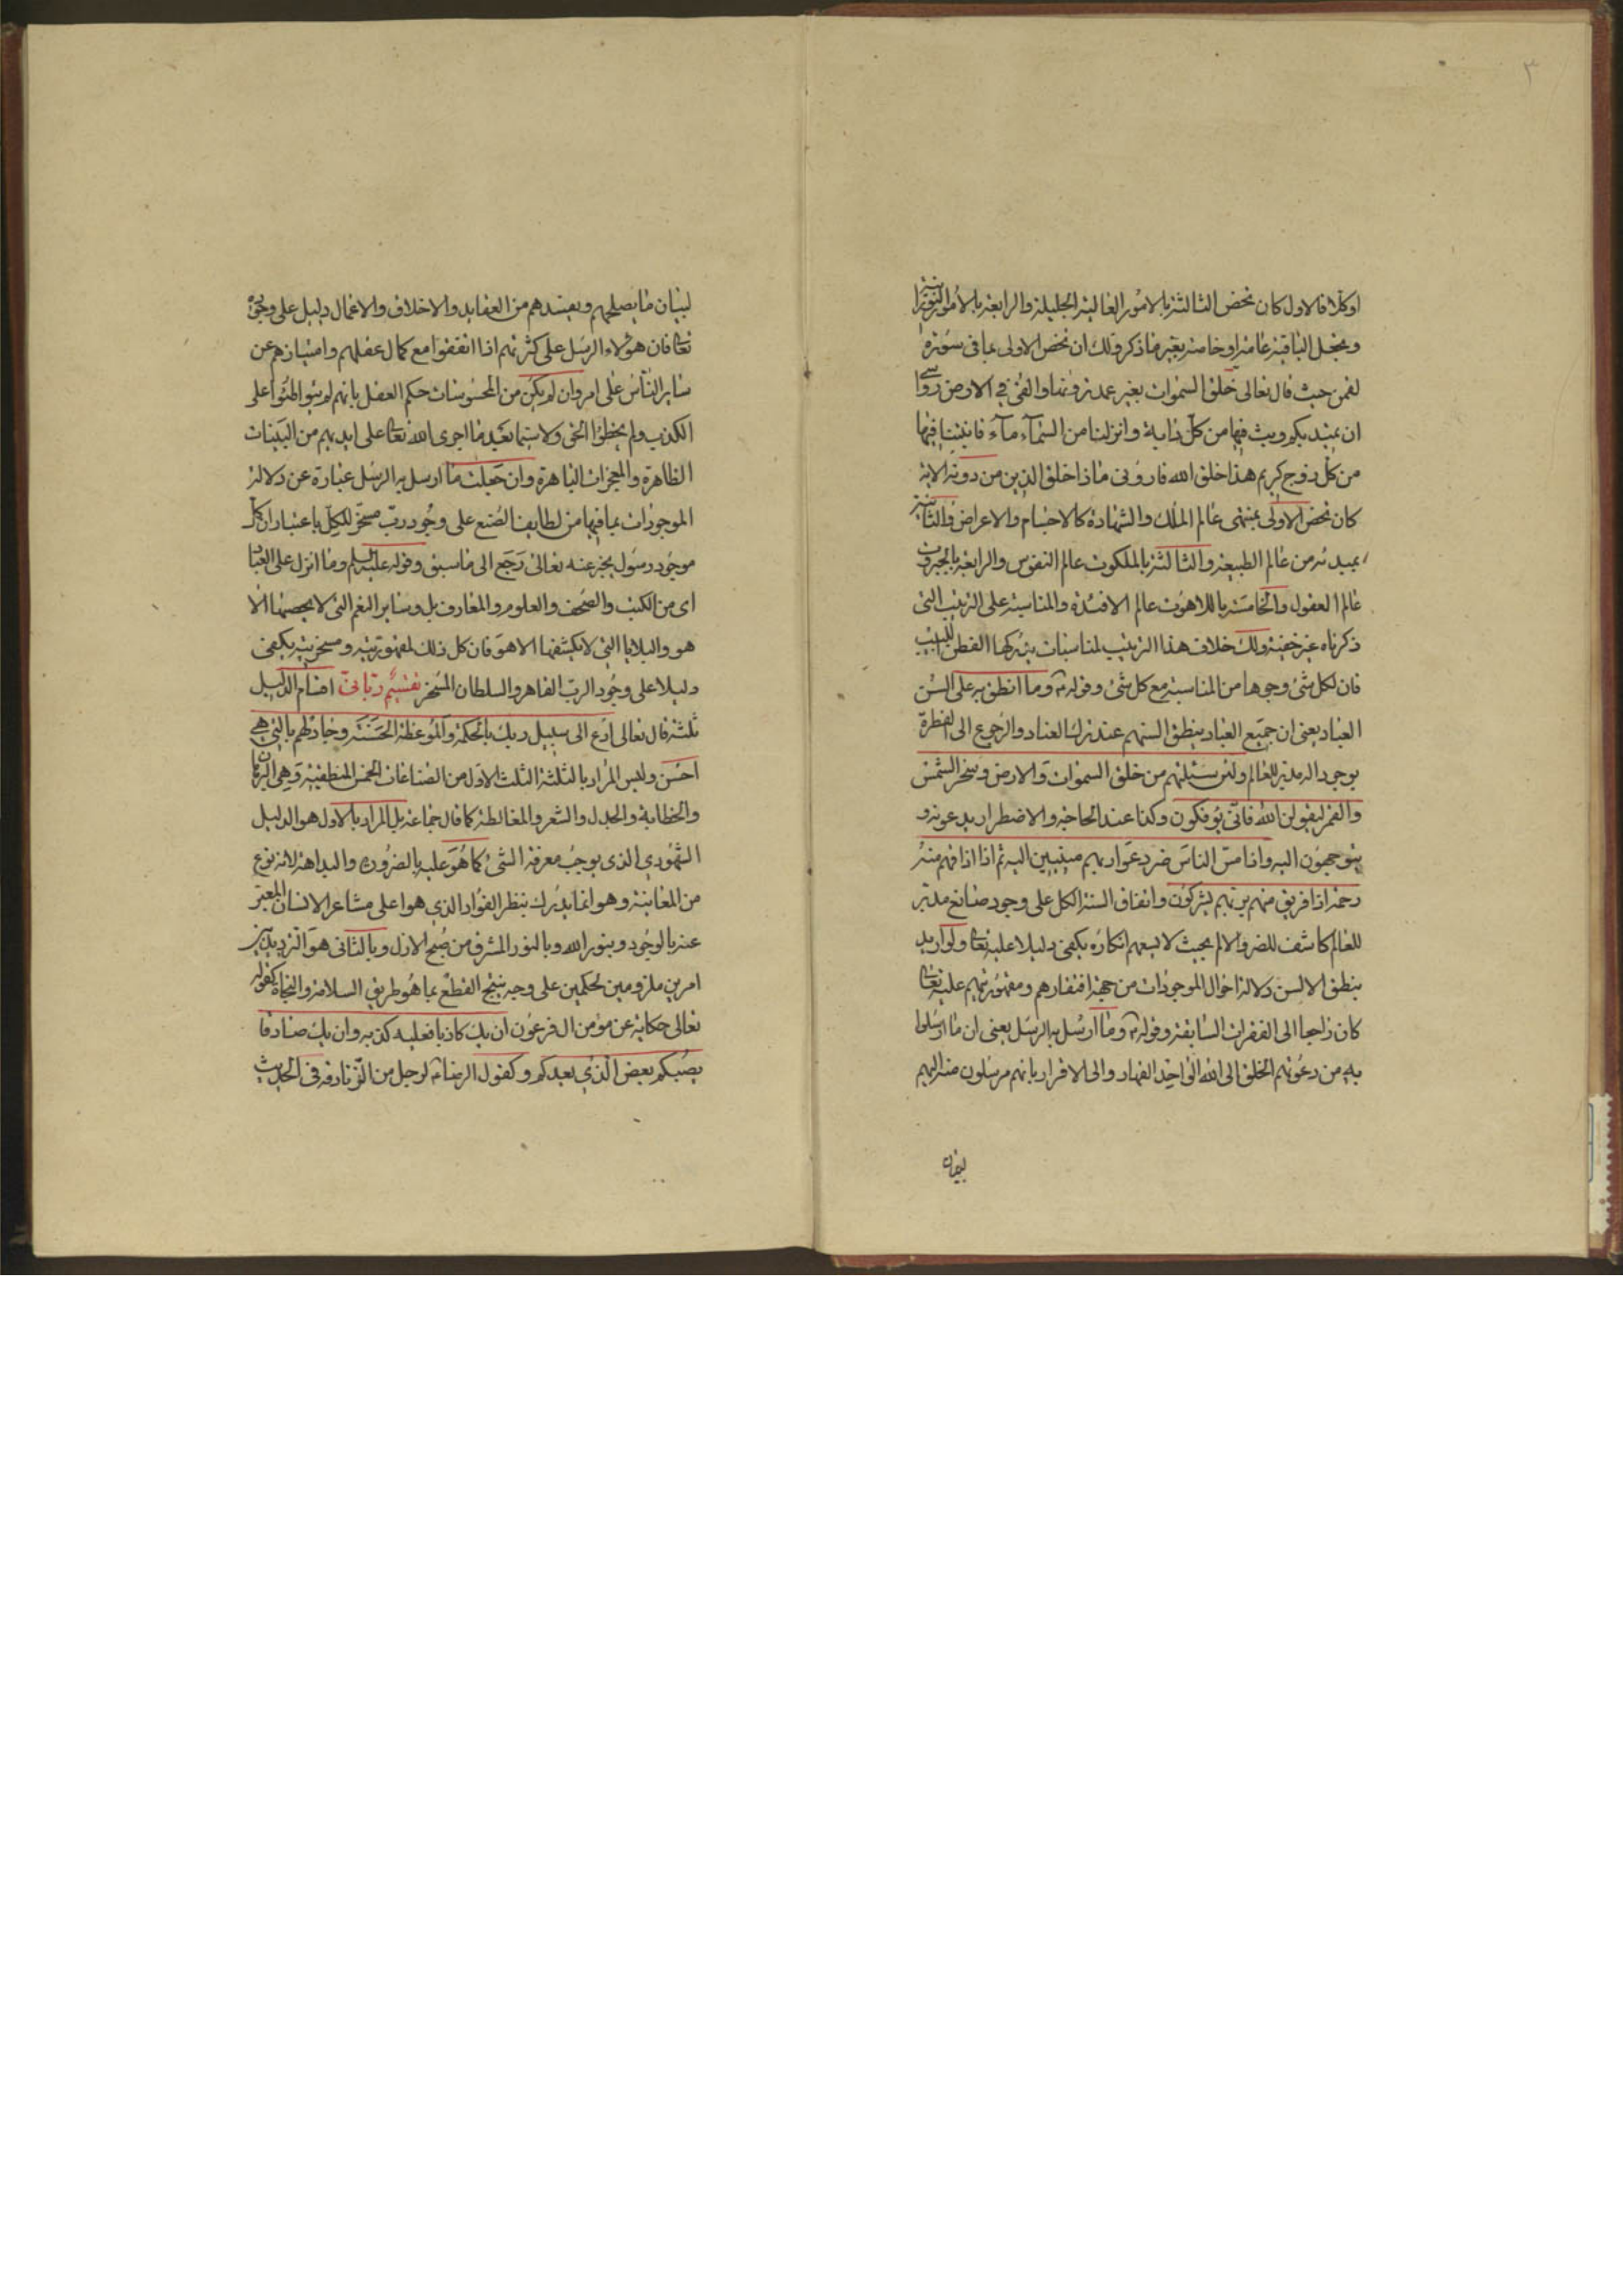 ٣
اوكلا فالاول كان نخص الثالثة بالامور العالية الجليلة والرابعة بالامور
ونجعل الباقية عامة او خاصة بغير ما ذكر ولك ان نخص الاولى بما فى سورة
لقمن حيث قال تعالى خلق السموات بغير عمد ترونها والقى في الارض رواسي
ان تميد بكم وبث فيها من كل دابة وانزلنا من السمآء مآء فانبتنا فيها
من كل زوج كريم هذا خلق الله فارونى ماذا خلق الذين من دونه الاية
كان نخص الاولى بمنتهى عالم الملك والشهادة كالاجسام والاعراض والثانية
بمبدئه من عالم الطبيعة والثالثة بالملكوت عالم النفوس والرابعة بالجبروت
عالم العقول والخامسة باللاهوت عالم الافئدة والمناسبة على الترتيب التى
ذكرناه غير خفية ولك خلاف هذا الترتيب لمناسبات يدركها الفطن اللبيب
فان لكل شئ وجوها من المناسبة مع كل شئ وقوله ع وما انطق به على السن
العباد يعنى ان جميع العباد ينطق السنتهم عند ترك العناد والرجوع الى الفطرة
بوجود اله مدبر للعالم ولئن سئلتهم من خلق السموات والارض وسخر الشمس
والقمر ليقولن الله فانّى يؤفكون وكذا عند الحاجة والاضطرار يدعونه و
يتوجهون اليه واذا مس الناس ضر دعوا ربهم منيبين اليه ثم اذا اذاقهم منه
رحمة اذا فريق منهم بربهم يشركون واتفاق السنة الكل على وجود صانع مدبر
للعالم كاشف للضر والالم بحيث لا يسعهم انكاره يكفى دليلا عليه تعا ولو اريد
بنطق الالسن دلالة احوال الموجودات من جهة افتقارهم ومقهوريتهم عليه تعا
كان راجعا الى الفقرات السابقة وقوله ع وما ارسل به الرسل يعنى ان ما ارسلوا
به من دعوتهم الخلق الى الله الواحد القهار والى الاقرار بانهم مرسلون منه اليهم
لبيان
لبيان ما يصلحهم ويفسدهم من العقايد والاخلاق والاعمال دليل على وجوده
تعا فان هؤلاء الرسل على كثرتهم اذا اتفقوا مع كمال عقلهم وامتيازهم عن
ساير الناس على امر وان لم يكن من المحسوسات حكم العقل بانهم لم يتواطئوا على
الكذب ولم يخطؤا الحق ولا سيما بعد ما اجرى الله تعا على ايديهم من البينات
الظاهرة والمعجزات الباهرة وان جعلت ما ارسل به الرسل عبارة عن دلالة
الموجودات بما فيها من لطايف الصنع على وجود رب مسخر للكل باعتبار ان كل
موجود رسول يخبر عنه تعالى رجع الى ما سبق وقوله عليه السلم وما انزل على العباد
اى من الكتب والصحف والعلوم والمعارف بل وساير النعم التى لا يحصيها الا
هو والبلايا التى لا يكشفها الا هو فان كل ذلك لمقهوريته ومسخريته يكفى
دليلا على وجود الرب القاهر والسلطان المسخر تقسيم ربانى اقسام الدليل
ثلثة قال تعالى ادع الى سبيل ربك بالحكمة والموعظة الحسنة وجادلهم بالتي هي
احسن وليس المراد بالثلثة الثلث الاول من الصناعات الخمس المنطقية وهى البرهان
والخطابة والجدل والشعر والمغالطة كما قال جماعة بل المراد بالاول هو الدليل
الشهودي الذى يوجب معرفة الشئ كما هو عليه بالضرورة والبداهة لانه نوع
من المعاينة وهو انما يدرك بنظر الفؤاد الذي هو اعلى مشاعر الانسان المعبر
عنه بالوجود وبنور الله وبالنور المشرق من صبح الازل وبالثانى هو الترديد بين
امرين ملزومين لحكمين على وجه ينتج القطع بما هو طريق السلامة والنجاة كقوله
تعالى حكاية عن مؤمن ال فرعون ان يك كاذبا فعليه كذبه وان يك صادقا
يصبكم بعض الذي يعدكم وكقول الرضا ع لرجل من الزنادقة فى الحديث